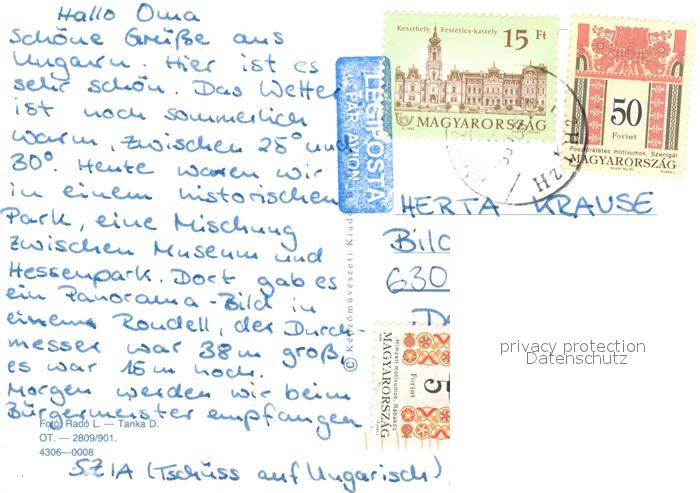 Hallo Oma
Schöne Grüße aus
Ungarn. Hier ist es
sehr schön. Das Wetter
ist noch sommerlich
warm, zwischen 25° und
30°. Heute waren wir
in einem historischen
Park, eine Mischung
zwischen Museum und
Hessenpark. Dort gab es
ein Panorama-Bild in
einem Rondell, der Durch-
messer war 38m groß,
es war 15m hoch.
Morgen werden wir beim
Bürgermeister empfangen
SZIA (Tschüss auf Ungarisch)
Fotó: Radó L. — Tanka D.
OT. — 2809/901.
4306—0008
© Képzőművészeti Kiadó
LÉGIPOSTA
PAR AVION
Keszthely, Festetics-kastély
15 Ft
MAGYARORSZÁG
50
Forint
Posztórátétes motívumok, Szentgál
MAGYARORSZÁG
HERTA KRAUSE
Bild
630
privacy protection
Datenschutz
5
Forint
Hímzett motívumok, Rábaköz
MAGYARORSZÁG